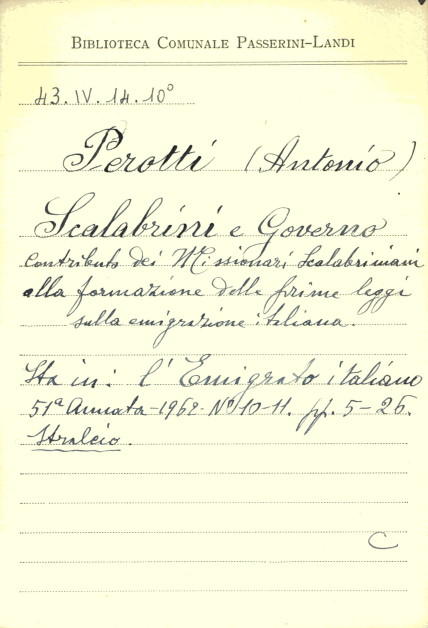 BIBLIOTECA COMUNALE PASSERINI-LANDI
43. IV. 14. 10°
Perotti (Antonio)
Scalabrini e Governo
contributo dei Missionari Scalabriniani
alla formazione delle prime leggi
sulla emigrazione italiana.
Sta in: l'Emigrato italiano
51ª Annata - 1962 - Nº 10-11. pp. 5-26.
Stralcio.
C